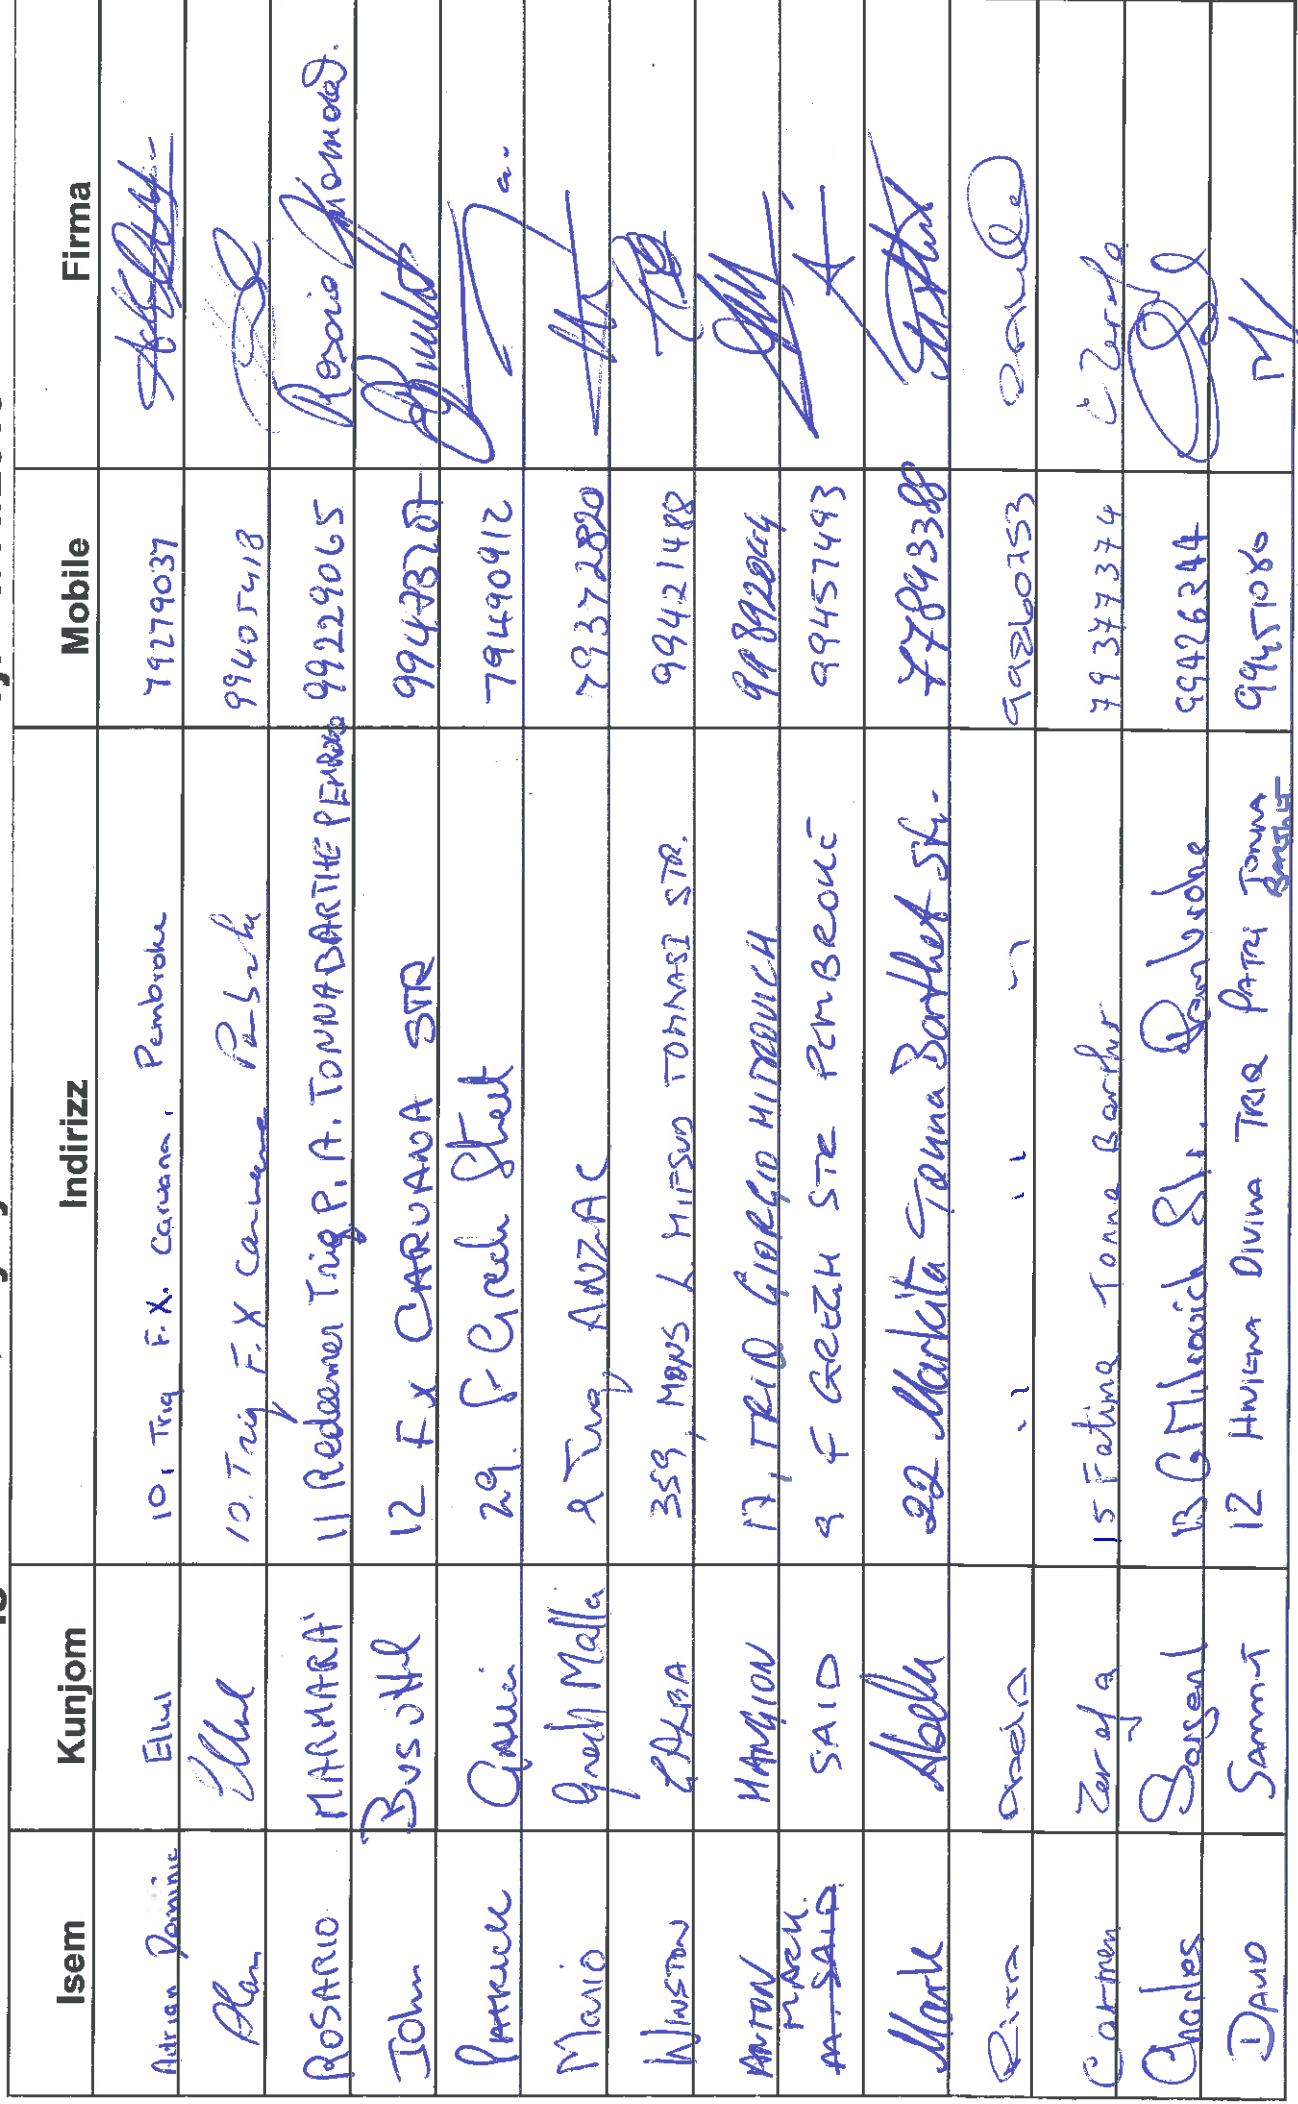 Isem Kunjom Indirizz Mobile Firma
Adrian Dominic Ellul 10, Triq F.X. Caruana, Pembroke 79279037
Alan Ellul 10. Triq F.X Caruana Pembroke 99405418
ROSARIO MARMARA' 11 Redeemer Triq P. A. TONNA BARTHET PEMBROKE 99229065 Rosario Marmara'.
John Busuttil 12 F X CARUANA STR
PATRICK Gauci 29. F Grech Street 79490912
Mario Grech Mallia 2 Triq ANZAC 79372820
WINSTON ZAHRA 359, MONS L. MIFSUD TOMMASI STR. 99421488
ANTON MANGION 17, TRIQ GIORGIO MITROVICH
MARK M. SAID SAID 9 F GRECH STR PEMBROKE 99457493
Mark Abela 22 Markita Tonna Barthet Str. 77893388
Rita Abela " " " " 99260753
Carmen Zerafa 15 Fatima Tonna Barthet 79377374 C Zerafa
Charles 13 G. Mitrovich Str. Pembroke 99426344
DAVID SAMMUT 12 HNIENA DIVINA TRIQ PATRI TONNA BARTHET 99451080